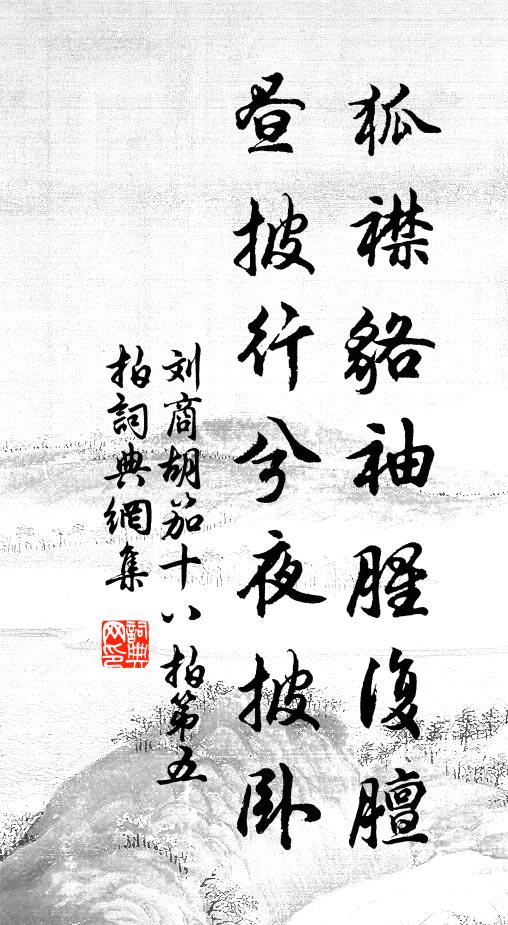 狐襟貉袖腥復膻
晝披行兮夜披卧
刘商胡笳十八拍第五
拍詞典網集
詞典
网印